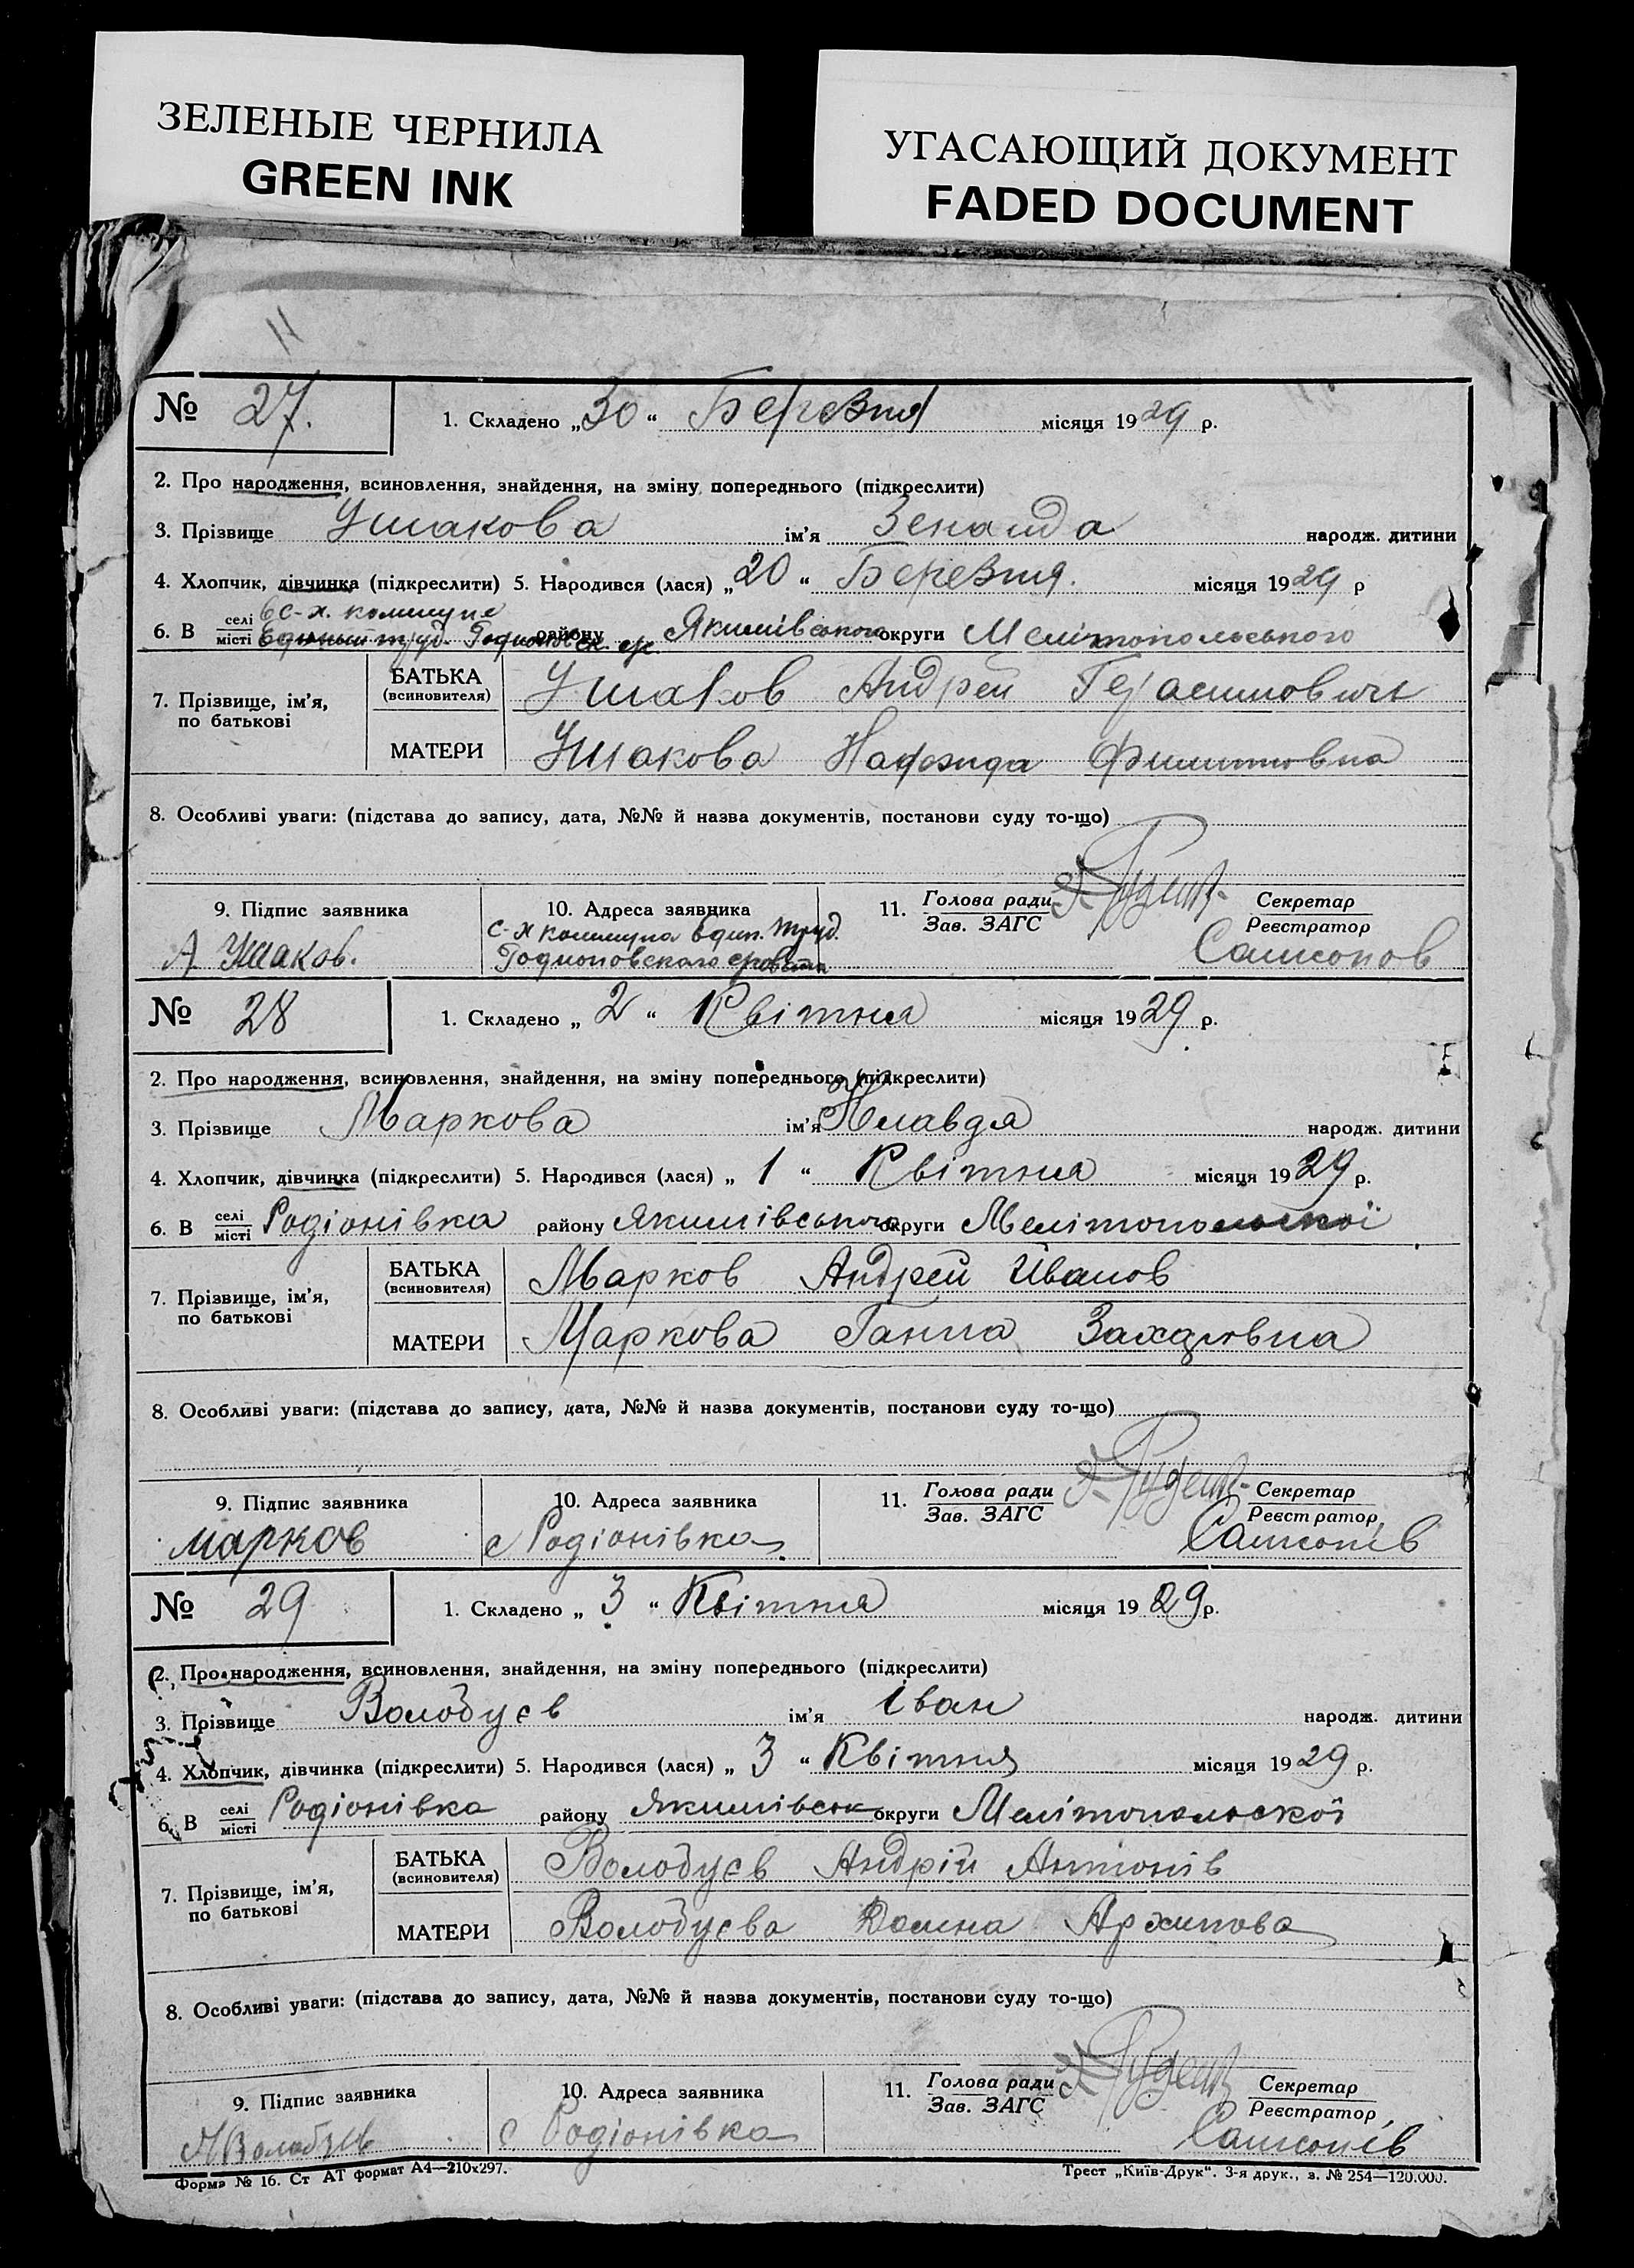 ЗЕЛЕНЫЕ ЧЕРНИЛА
GREEN INK
УГАСАЮЩИЙ ДОКУМЕНТ
FADED DOCUMENT
11
№ 27. 1. Складено „30“ Березня місяця 1929 р.
2. Про народження, всиновлення, знайдення, на зміну попереднього (підкреслити)
3. Прізвище Ушакова ім'я Зенаида народж. дитини
4. Хлопчик, дівчинка (підкреслити) 5. Народився (лася) „20“ Березня. місяця 1929 р
6. В селі місті с-х. коммуне району Якимівського округи Мелітопольського
7. Прізвище, ім'я, по батькові
БАТЬКА (всиновителя) Ушаков Андрей Герасимович
МАТЕРИ Ушакова
8. Особливі уваги: (підстава до запису, дата, №№ й назва документів, постанови суду то-що)
9. Підпис заявника 10. Адреса заявника 11. Голова ради Зав. ЗАГС Секретар Реєстратор
А Ушаков. с-х коммуна един. труд. Родионовскаго Самсонов
№ 28 1. Складено „2“ Квітня місяця 1929 р.
2. Про народження, всиновлення, знайдення, на зміну попереднього (підкреслити)
3. Прізвище Маркова ім'я Клавдя народж. дитини
4. Хлопчик, дівчинка (підкреслити) 5. Народився (лася) „1“ Квітня місяця 1929 р.
6. В селі місті Родіонівка району Якимівського округи Мелітопольської
7. Прізвище, ім'я, по батькові
БАТЬКА (всиновителя) Марков Андрей Иванов
МАТЕРИ Маркова Ганна Захаровна
8. Особливі уваги: (підстава до запису, дата, №№ й назва документів, постанови суду то-що)
9. Підпис заявника 10. Адреса заявника 11. Голова ради Зав. ЗАГС Секретар Реєстратор
Марков с Родіонівка Самсонів
№ 29 1. Складено „3“ Квітня місяця 1929 р.
2. Про народження, всиновлення, знайдення, на зміну попереднього (підкреслити)
3. Прізвище Волобуєв ім'я Іван народж. дитини
4. Хлопчик, дівчинка (підкреслити) 5. Народився (лася) „3“ Квітня місяця 1929 р.
6. В селі місті Родіонівка району Якимівськ округи Мелітопольскої
7. Прізвище, ім'я, по батькові
БАТЬКА (всиновителя) Волобуєв Андрій Антонів
МАТЕРИ Волобуєва Домна Архипова
8. Особливі уваги: (підстава до запису, дата, №№ й назва документів, постанови суду то-що)
9. Підпис заявника 10. Адреса заявника 11. Голова ради Зав. ЗАГС Секретар Реєстратор
с Родіонівка Самсонів
Форма № 16. Ст АТ формат А4—210x297. Трест „Київ-Друк“. 3-я друк., з. № 254—120.000.